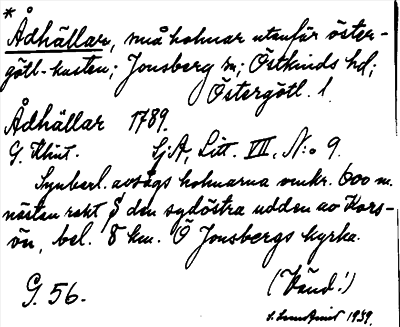 *
Ådhällar, små holmar utanför öster-
götl-kusten; Jonsberg sn; Östkinds hd;
Östergötl. l.
Ådhällar 1789.
G. Klint. SjA, Litt. VII, N:o 9.
Synberl. avsågs holmarna omkr. 600 m.
nästan rakt S den sydöstra udden av Kors-
ön, bel. 8 km. O Jonsbergs kyrka.
G. 56. (Vänd!)
1939.